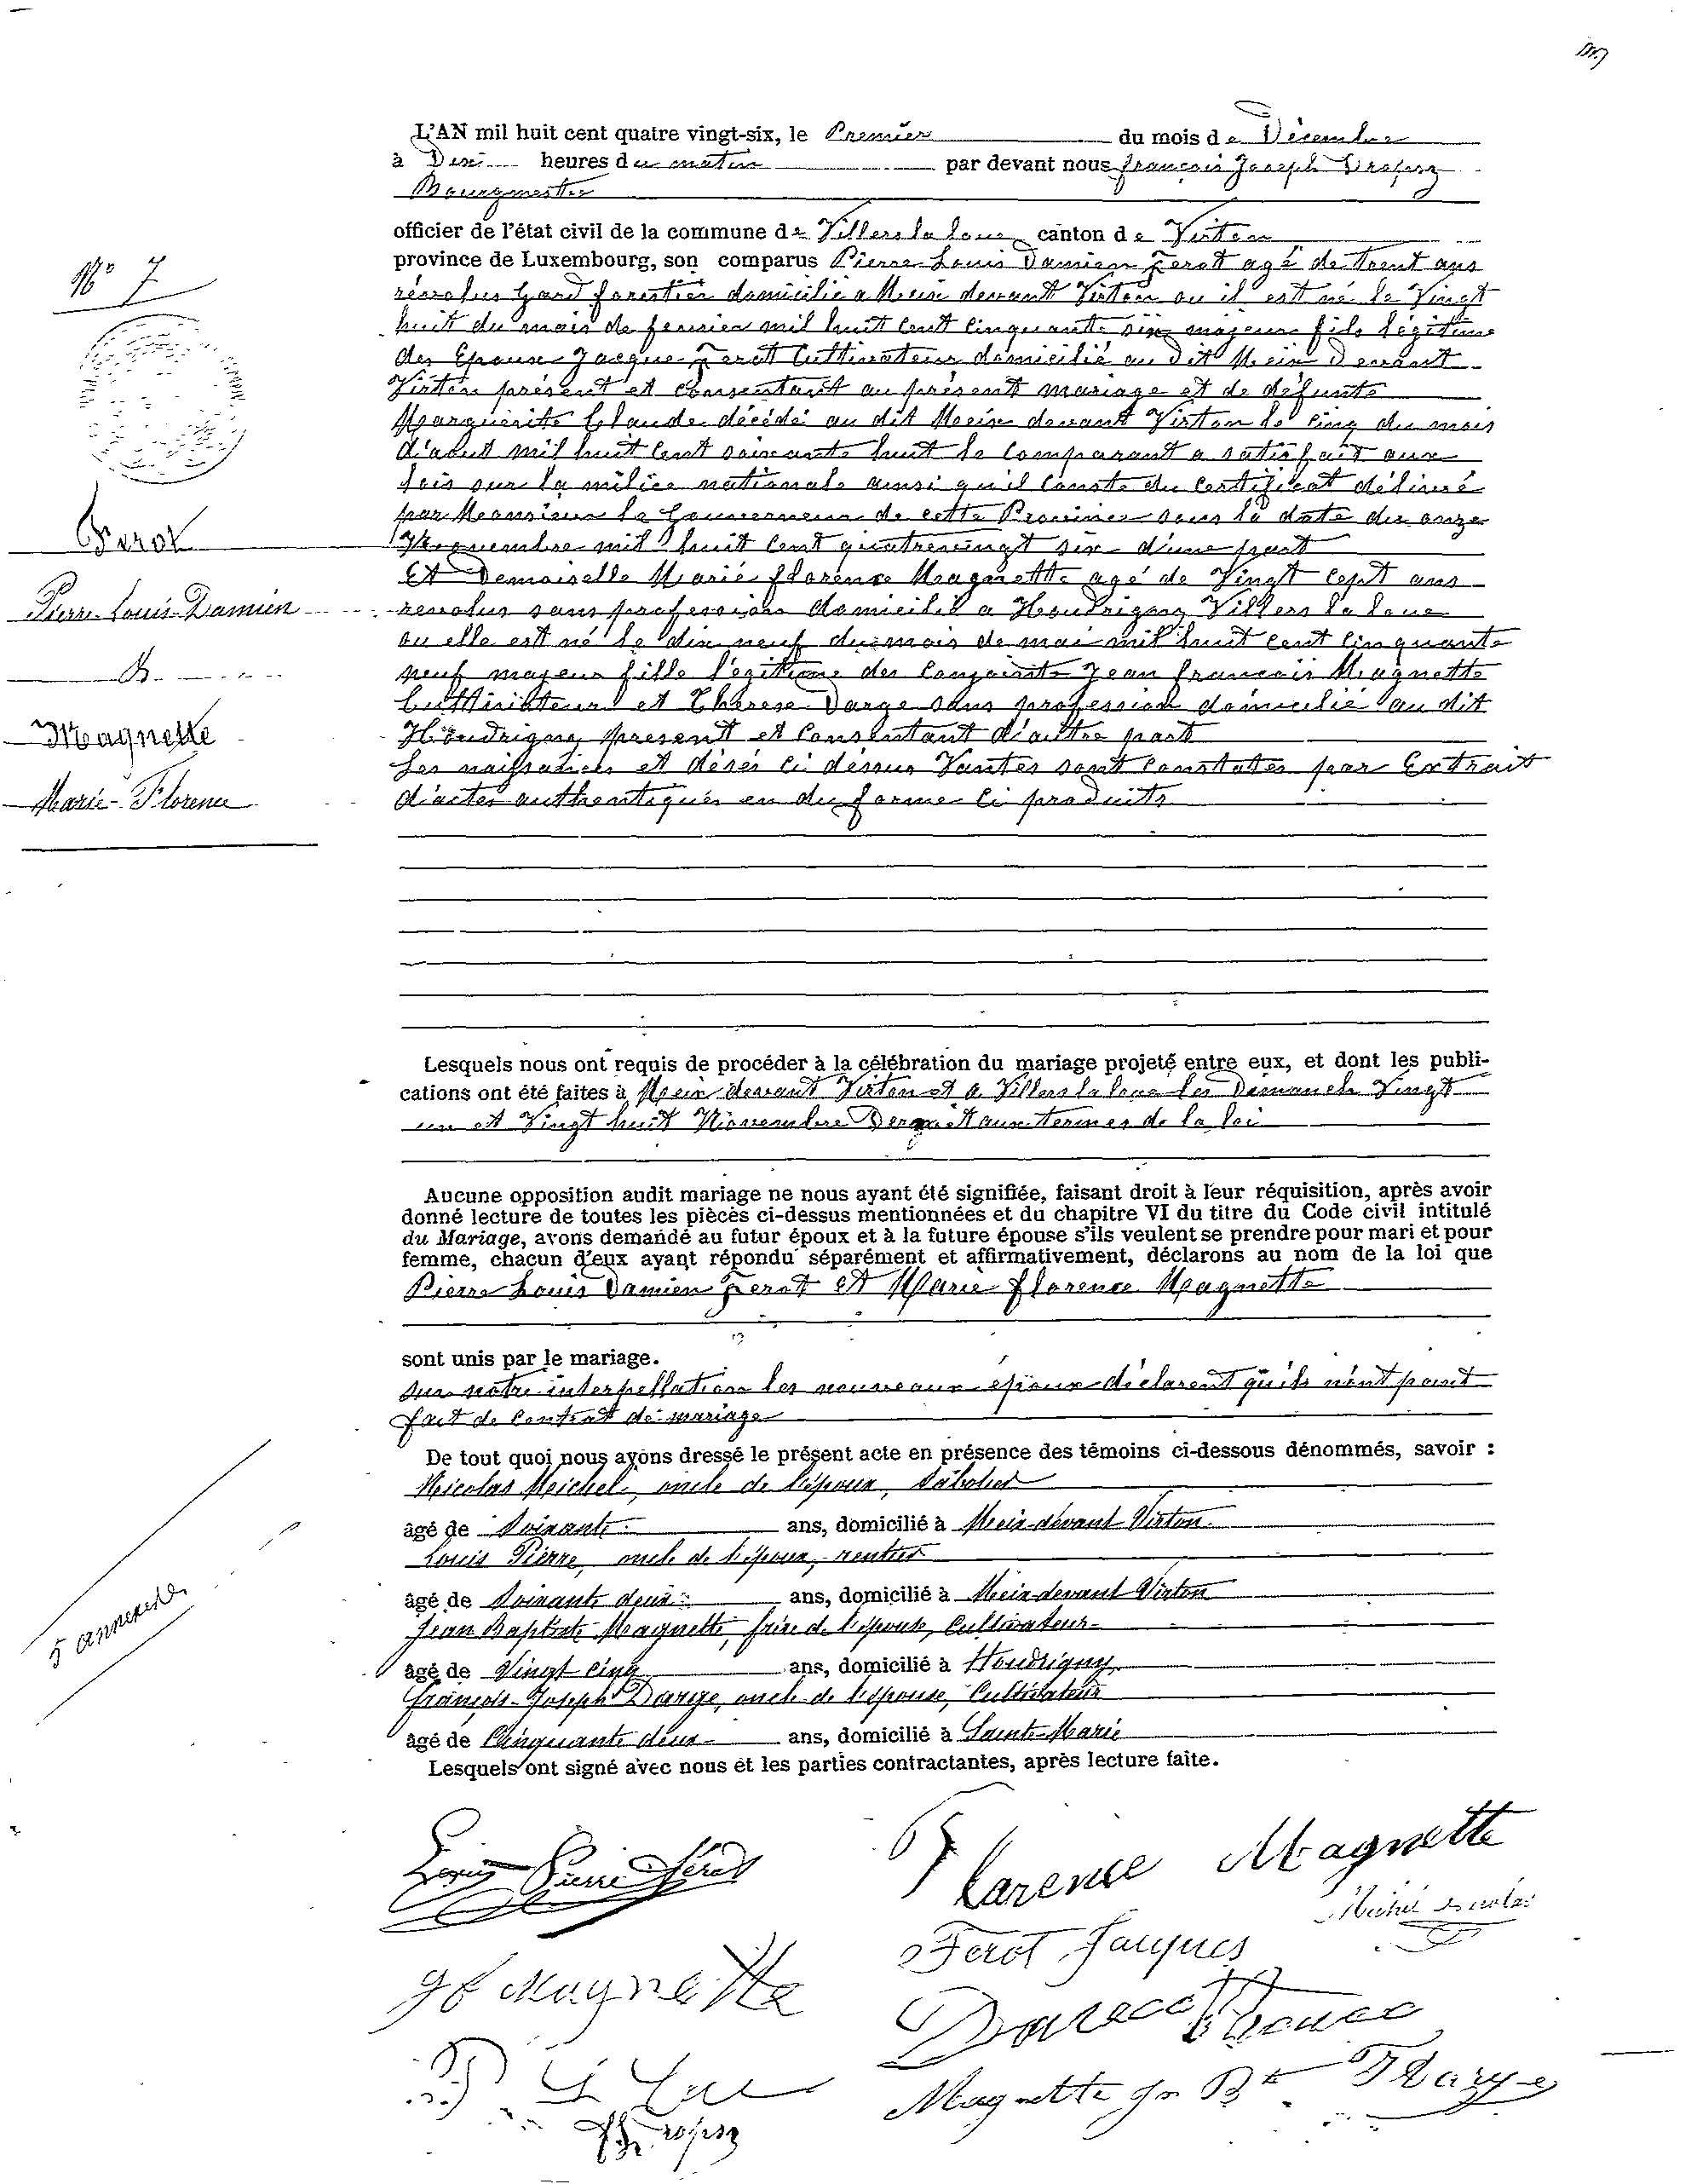 L'AN mil huit cent quatre vingt-six, le Premier du mois de Décembre
à Dix heures du matin par devant nous françois Joseph Dropsy
Bourgmestre
officier de l'état civil de la commune de Villers la loue canton de Virton
province de Luxembourg, son comparus Pierre Louis Damien Ferot agé de Trent ans
révolus Gard forestier domicilié a Meix devant Virton ou il est né le Vingt
huit du mois de fevrier mil huit cent cinquante six majeur fils légitime
des Epoux Jacque Ferot Cultivateur domicilié au dit Meix Devant
Virton présent et consentant au présent mariage et de défunte
Marguérite Claude décédé au dit Meix devant Virton le cinq du mois
d'aout mil huit cent soixante huit le comparant a satisfait aux
lois sur la milice nationale ainsi qu'il conste du certificat délivré
par Monsieur le Gouverneur de cette Province sous la date du onze
Novembre mil huit cent quatrevingt six d'une part
Et Demoiselle Marie florence Magnette agé de Vingt Sept ans
revolus sans profession domicilié a Houdrigny Villers la loue
ou elle est né le dix neuf du mois de mai mil huit cent cinquante
neuf majeur fille légitime des conjoints Jean francois Magnette
Cultivateur et Thérese Darge sans profession domicilié au dit
Houdrigny present et consentant d'autre part
Les naissances et désés ci déssus Vantés sont constatés par Extrait
d'actes authentiques en du forme ci produits
N° 7
Ferot
Pierre-Louis-Damien
&
Magnette
Marie-Florence
Lesquels nous ont requis de procéder à la célébration du mariage projeté entre eux, et dont les publi-
cations ont été faites à Meix devant Virton et a Villers la loue les Dimanch Vingt
un et Vingt huit Novembre aux termes de la loi
Aucune opposition audit mariage ne nous ayant été signifiée, faisant droit à leur réquisition, après avoir
donné lecture de toutes les pièces ci-dessus mentionnées et du chapitre VI du titre du Code civil intitulé
du Mariage, avons demandé au futur époux et à la future épouse s'ils veulent se prendre pour mari et pour
femme, chacun d'eux ayant répondu séparément et affirmativement, déclarons au nom de la loi que
Pierre Louis Damien Ferot et Marie florence Magnette
sont unis par le mariage.
sur notre interpellation les nouveaux époux déclarent qu'ils n'ont point
fait de contrat de mariage
De tout quoi nous avons dressé le présent acte en présence des témoins ci-dessous dénommés, savoir :
Nicolas Meichel, oncle de l'époux, Sabotier
âgé de Soixante ans, domicilié à Meix-devant Virton
Louis Pierre, oncle de l'époux, rentier
âgé de Soixante deux ans, domicilié à Meix-devant Virton
Jean Baptiste Magnette, frère de l'épouse, Cultivateur
âgé de Vingt cinq ans, domicilié à Houdrigny
François-Joseph Darge, oncle de l'épouse, Cultivateur
âgé de Cinquante deux ans, domicilié à Sainte-Marie
Lesquels ont signé avec nous et les parties contractantes, après lecture faite.
5 annexes
Louis Pierre Férot
Florence Magnette
Michel Nicolas
Ferot Jacques
Magnette
Magnette Jn Bte
Darge
Dropsy